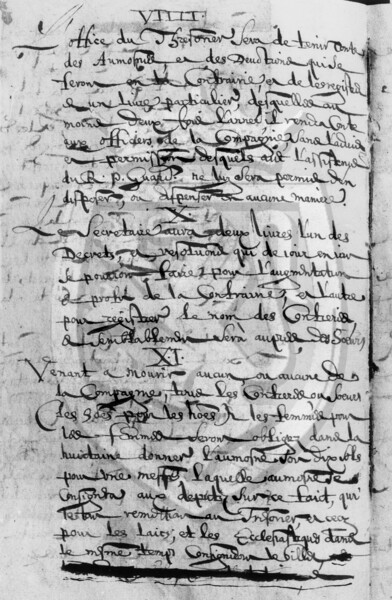 VIIII.
L'office du Thresorier sera de tenir conte
des Aumosnes, et des Devotions qui se
feront en la Confrairie et de les registrer
en un livre particulier, desquelles au
moins deux fois l'annee il rendra conte
aux officiers de la Compagnie, sans l'adveu
et permission desquels avec l'assistence
du R. P. Guard. ne luy sera permis d'en
disposer, ou dispenser en aucune maniere.
X
Le Secretaire aura deux livres l'un des
Decrets, et resolutions qui de iour en iour
se pourront faire pour l'augmentation
et profit de la Confrairie, et l'autre
pour registrer le nom des Confreres
et semblablement sera au des Soeurs
XI.
Venant a mourir aucun ou aucune de
la Compagnie, tous les Confreres ou soeurs
(les pour les hoes, et les femmes pour
les femmes seront obligez dans la
huictaine donner l'aumosne d'un dix sols
pour une messe, laquelle aumosne se
consignera aux deputez sur ce fait, qui
remettron au Tresorier, et cecy
pour les laics, et les Ecclesiastiques dans
le mesme temps consigneront le billet